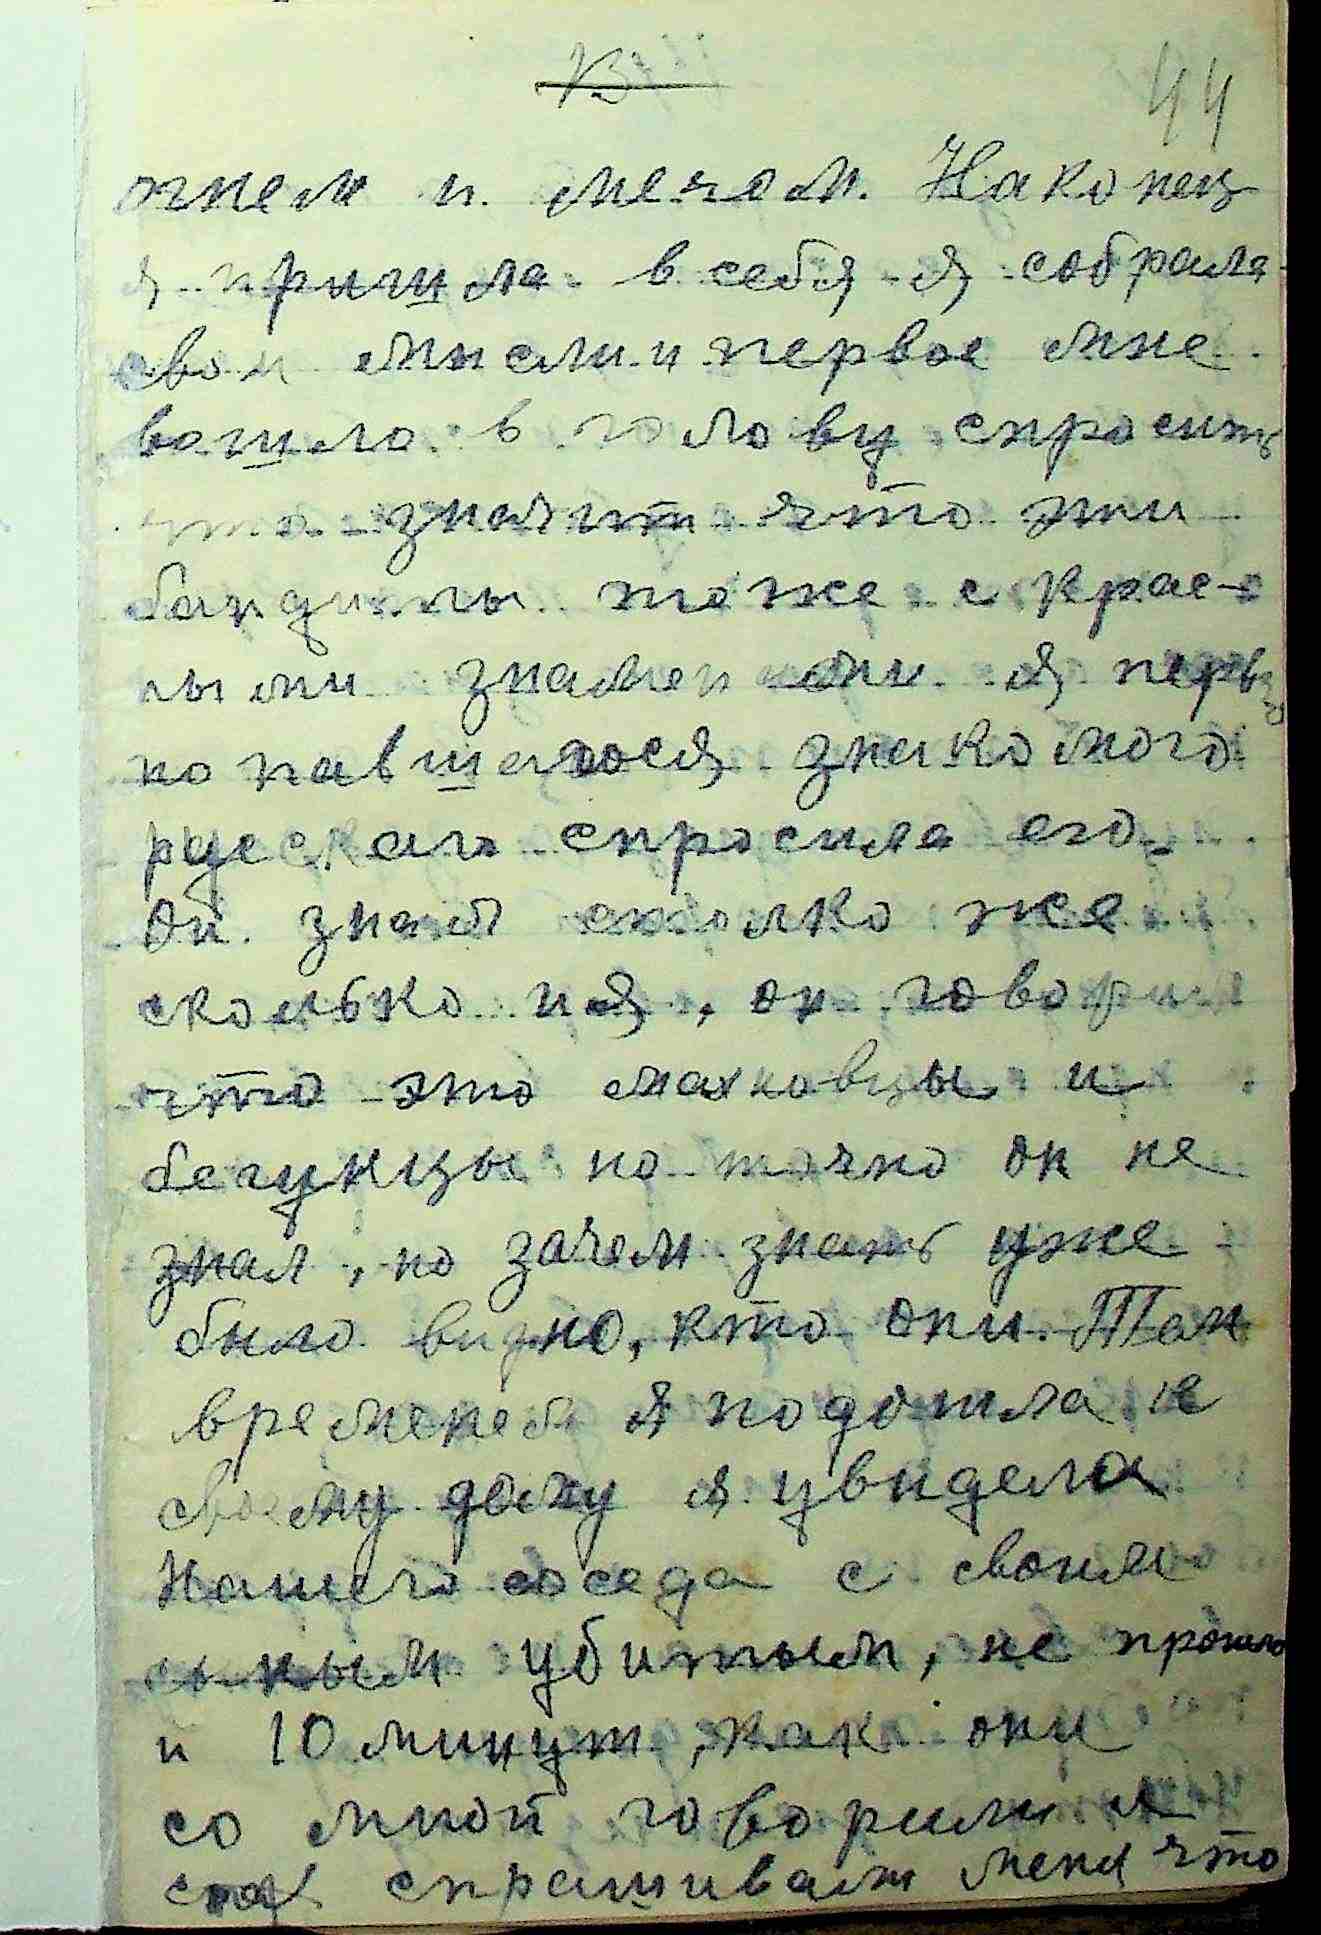 44
огнем и мечом. Наконец
я пришла в себя я собрала
свои мысли и первое мне
вошло в голову спросить
что значит что эти
бандиты тоже с крас-
ными знаменами я
попавшегося знакомого
русскаго спросила его.
Он знал сколко же
сколько и я, он говорил
что это махновцы и
бегунцы но точно он не
знал, но зачем знать уже
было видно, кто они. Тем
временем я подошла к
своему дому я увидела
Нашего соседа с своим
сыным убитым, не прошло
и 10 минут, как они
со мной говорили и
спрашивали меня что